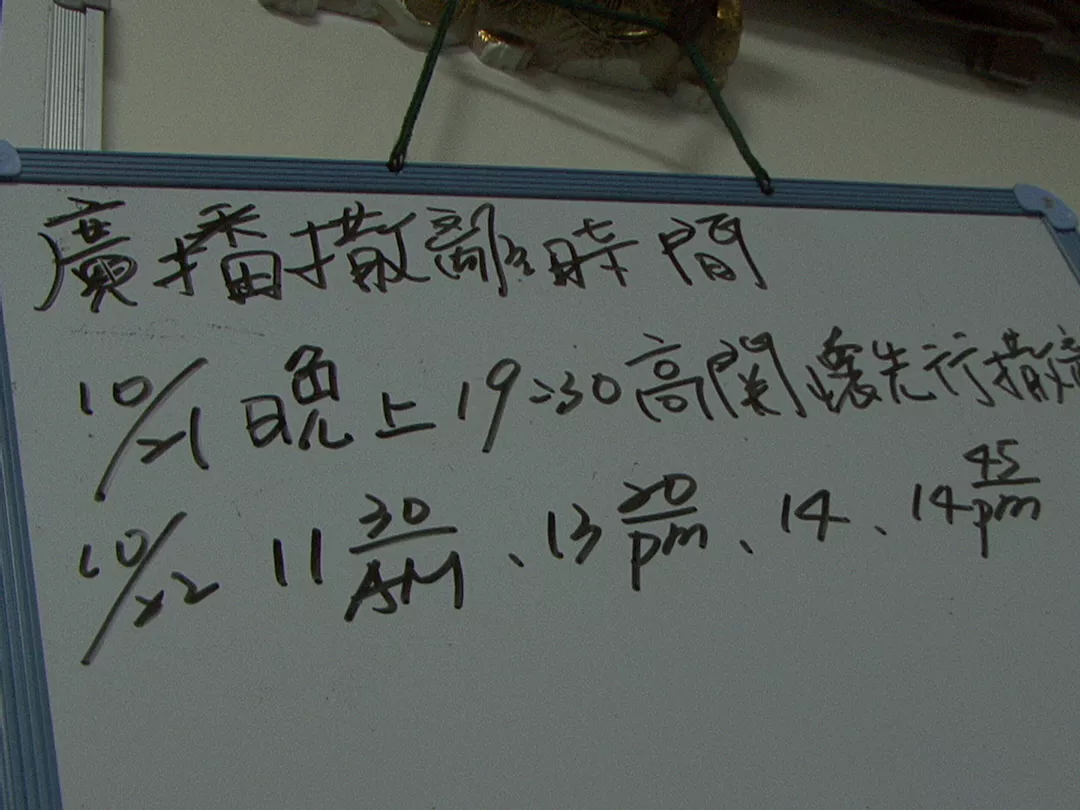 廣播撤離時間
10/21 晚上 19:30 高關懷先行撤離
10/22 11 30/AM、13 20/pm、14、14 45/pm